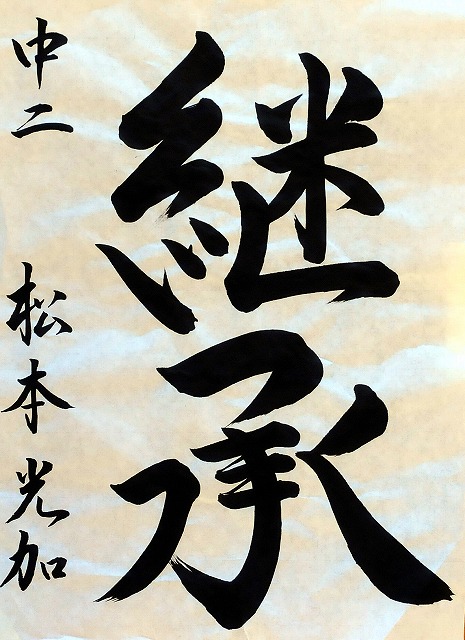 継承
中二 松本光加